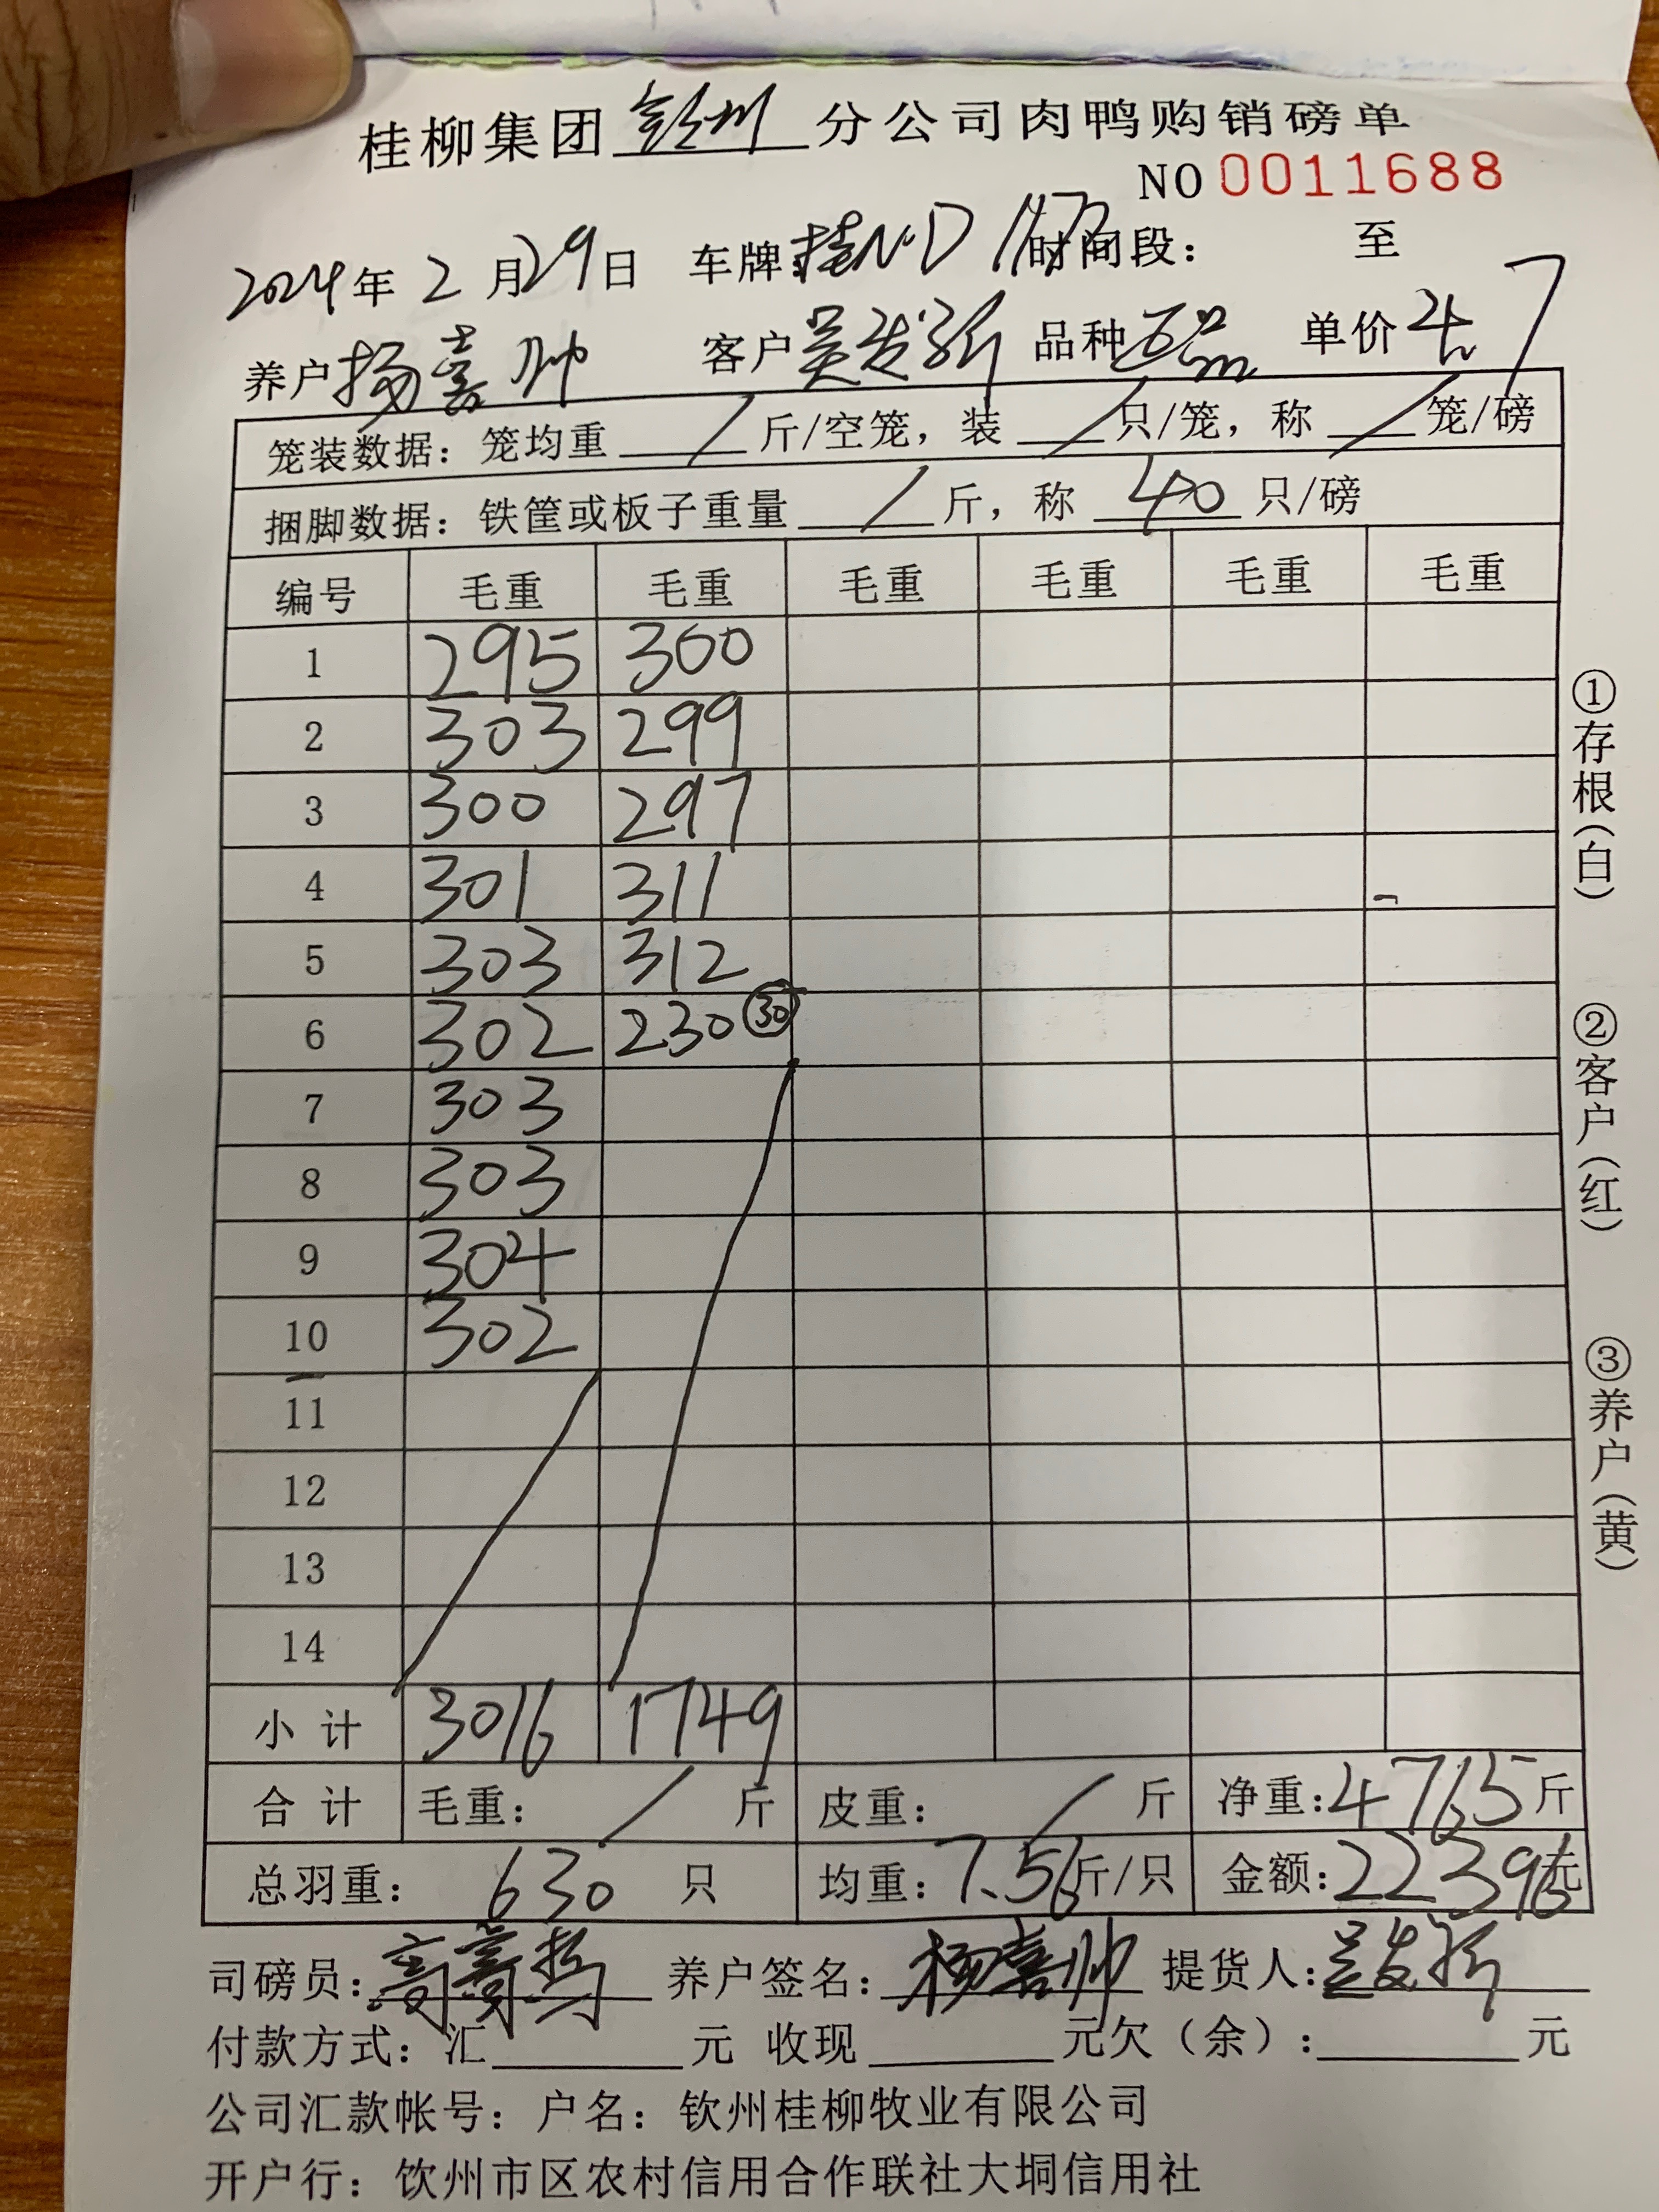 桂柳集团钦州分公司肉鸭购销磅单
NO 0011688
2024年2月29日 车牌桂N·D 时间段： 至
养户杨喜帅 客户吴发 品种 单价4.7
笼装数据：笼均重 / 斤/空笼，装 / 只/笼，称 / 笼/磅
捆脚数据：铁筐或板子重量 / 斤，称 40 只/磅
编号 毛重 毛重 毛重 毛重 毛重 毛重
1 295 300
2 303 299
3 300 297
4 301 311
5 303 312
6 302 230 ㉚
7 303
8 303
9 304
10 302
11
12
13
14
小计 3016 1749
合计 毛重： / 斤 皮重： / 斤 净重：4765斤
总羽重： 630 只 均重：7.56斤/只 金额：22396元
司磅员： 养户签名：杨喜帅 提货人：吴发
付款方式：汇 元 收现 元欠（余）： 元
公司汇款帐号：户名：钦州桂柳牧业有限公司
开户行：钦州市区农村信用合作联社大垌信用社
①存根（白）
②客户（红）
③养户（黄）